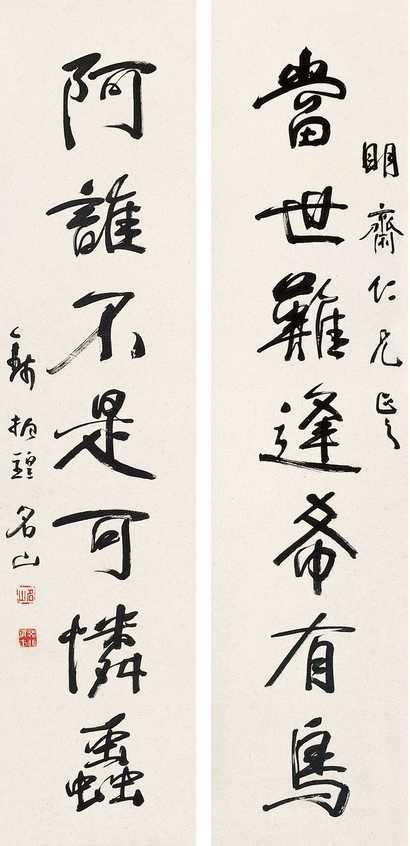 明齋仁兄正之
當世難逢希有鳥
阿誰不是可憐蟲
錢振鍠名山